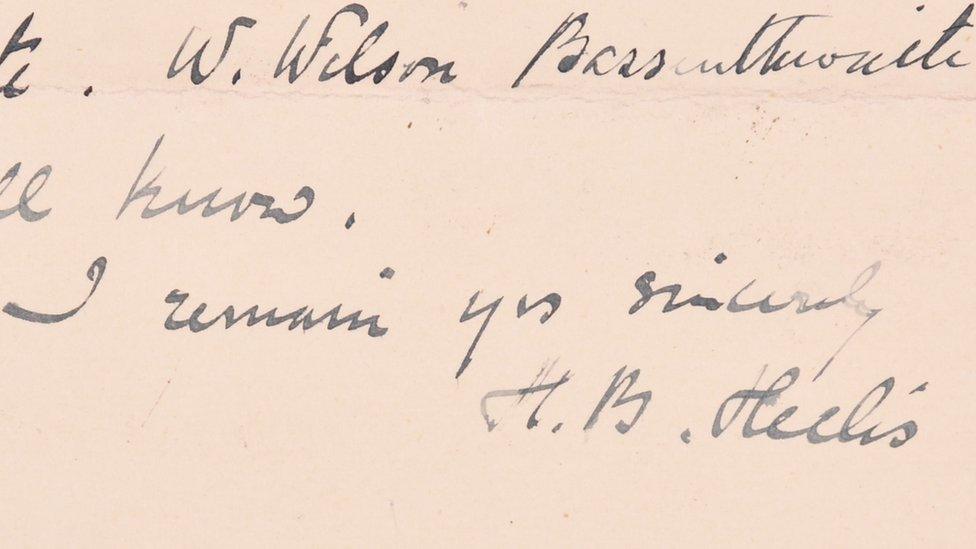 W. Wilson Bassenthwaite
know.
I remain yrs sincerely
H. B. Heelis